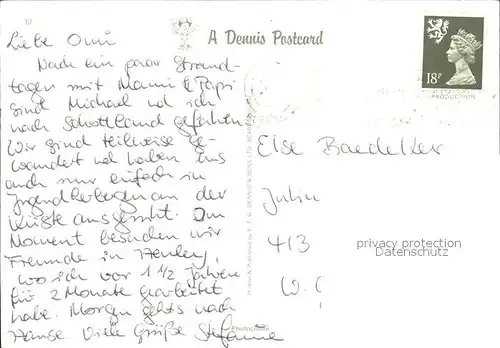 Liebe Omi
A Dennis Postcard
Nach ein paar Strand-
tagen mit Mami & Papi
sind Michael und ich
nach Schottland gefahren.
Wir sind teilweise ge-
wandert und haben uns
auch nur einfach in
Jugendherbergen an der
Küste ausgeruht. Im
Moment besuchen wir
Freunde in Henley,
wo ich vor 1 1/2 Jahren
für 2 Monate gearbeitet
habe. Morgen gehts nach
Hause. Viele Grüße Stefanie
18P
PRODUCTION
Else Baedeker
Julin
413
W.
privacy protection
Datenschutz
Photocolour